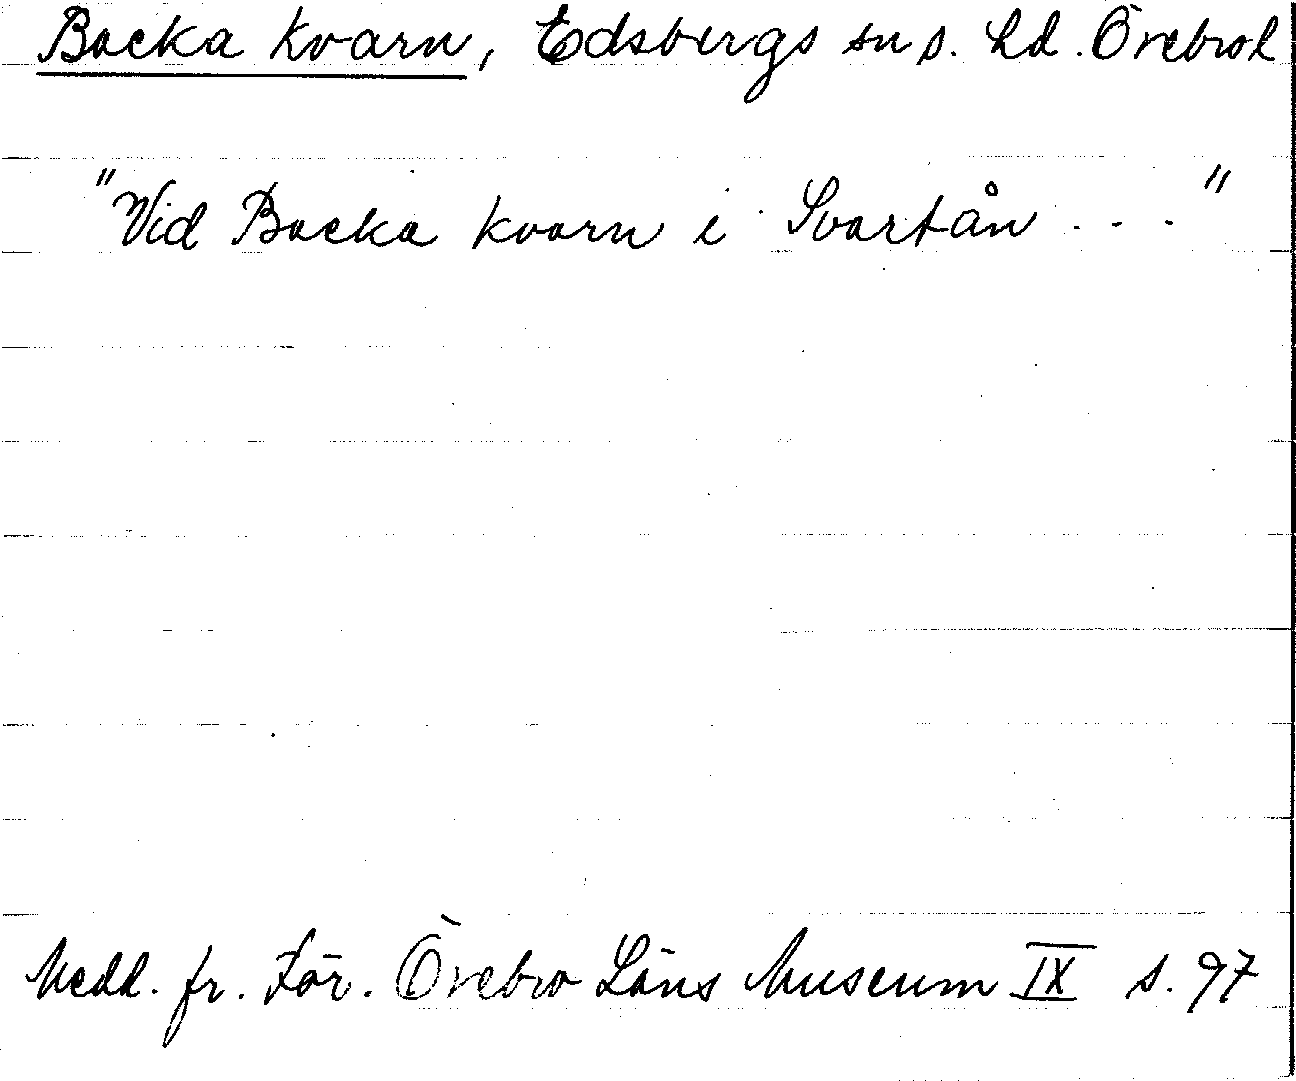 Backa kvarn, Edsbergs sn o. hd. Örebro l
"Vid Backa kvarn i Svartån . . . "
Medd. fr. För. Örebro Läns Museum IX s. 97